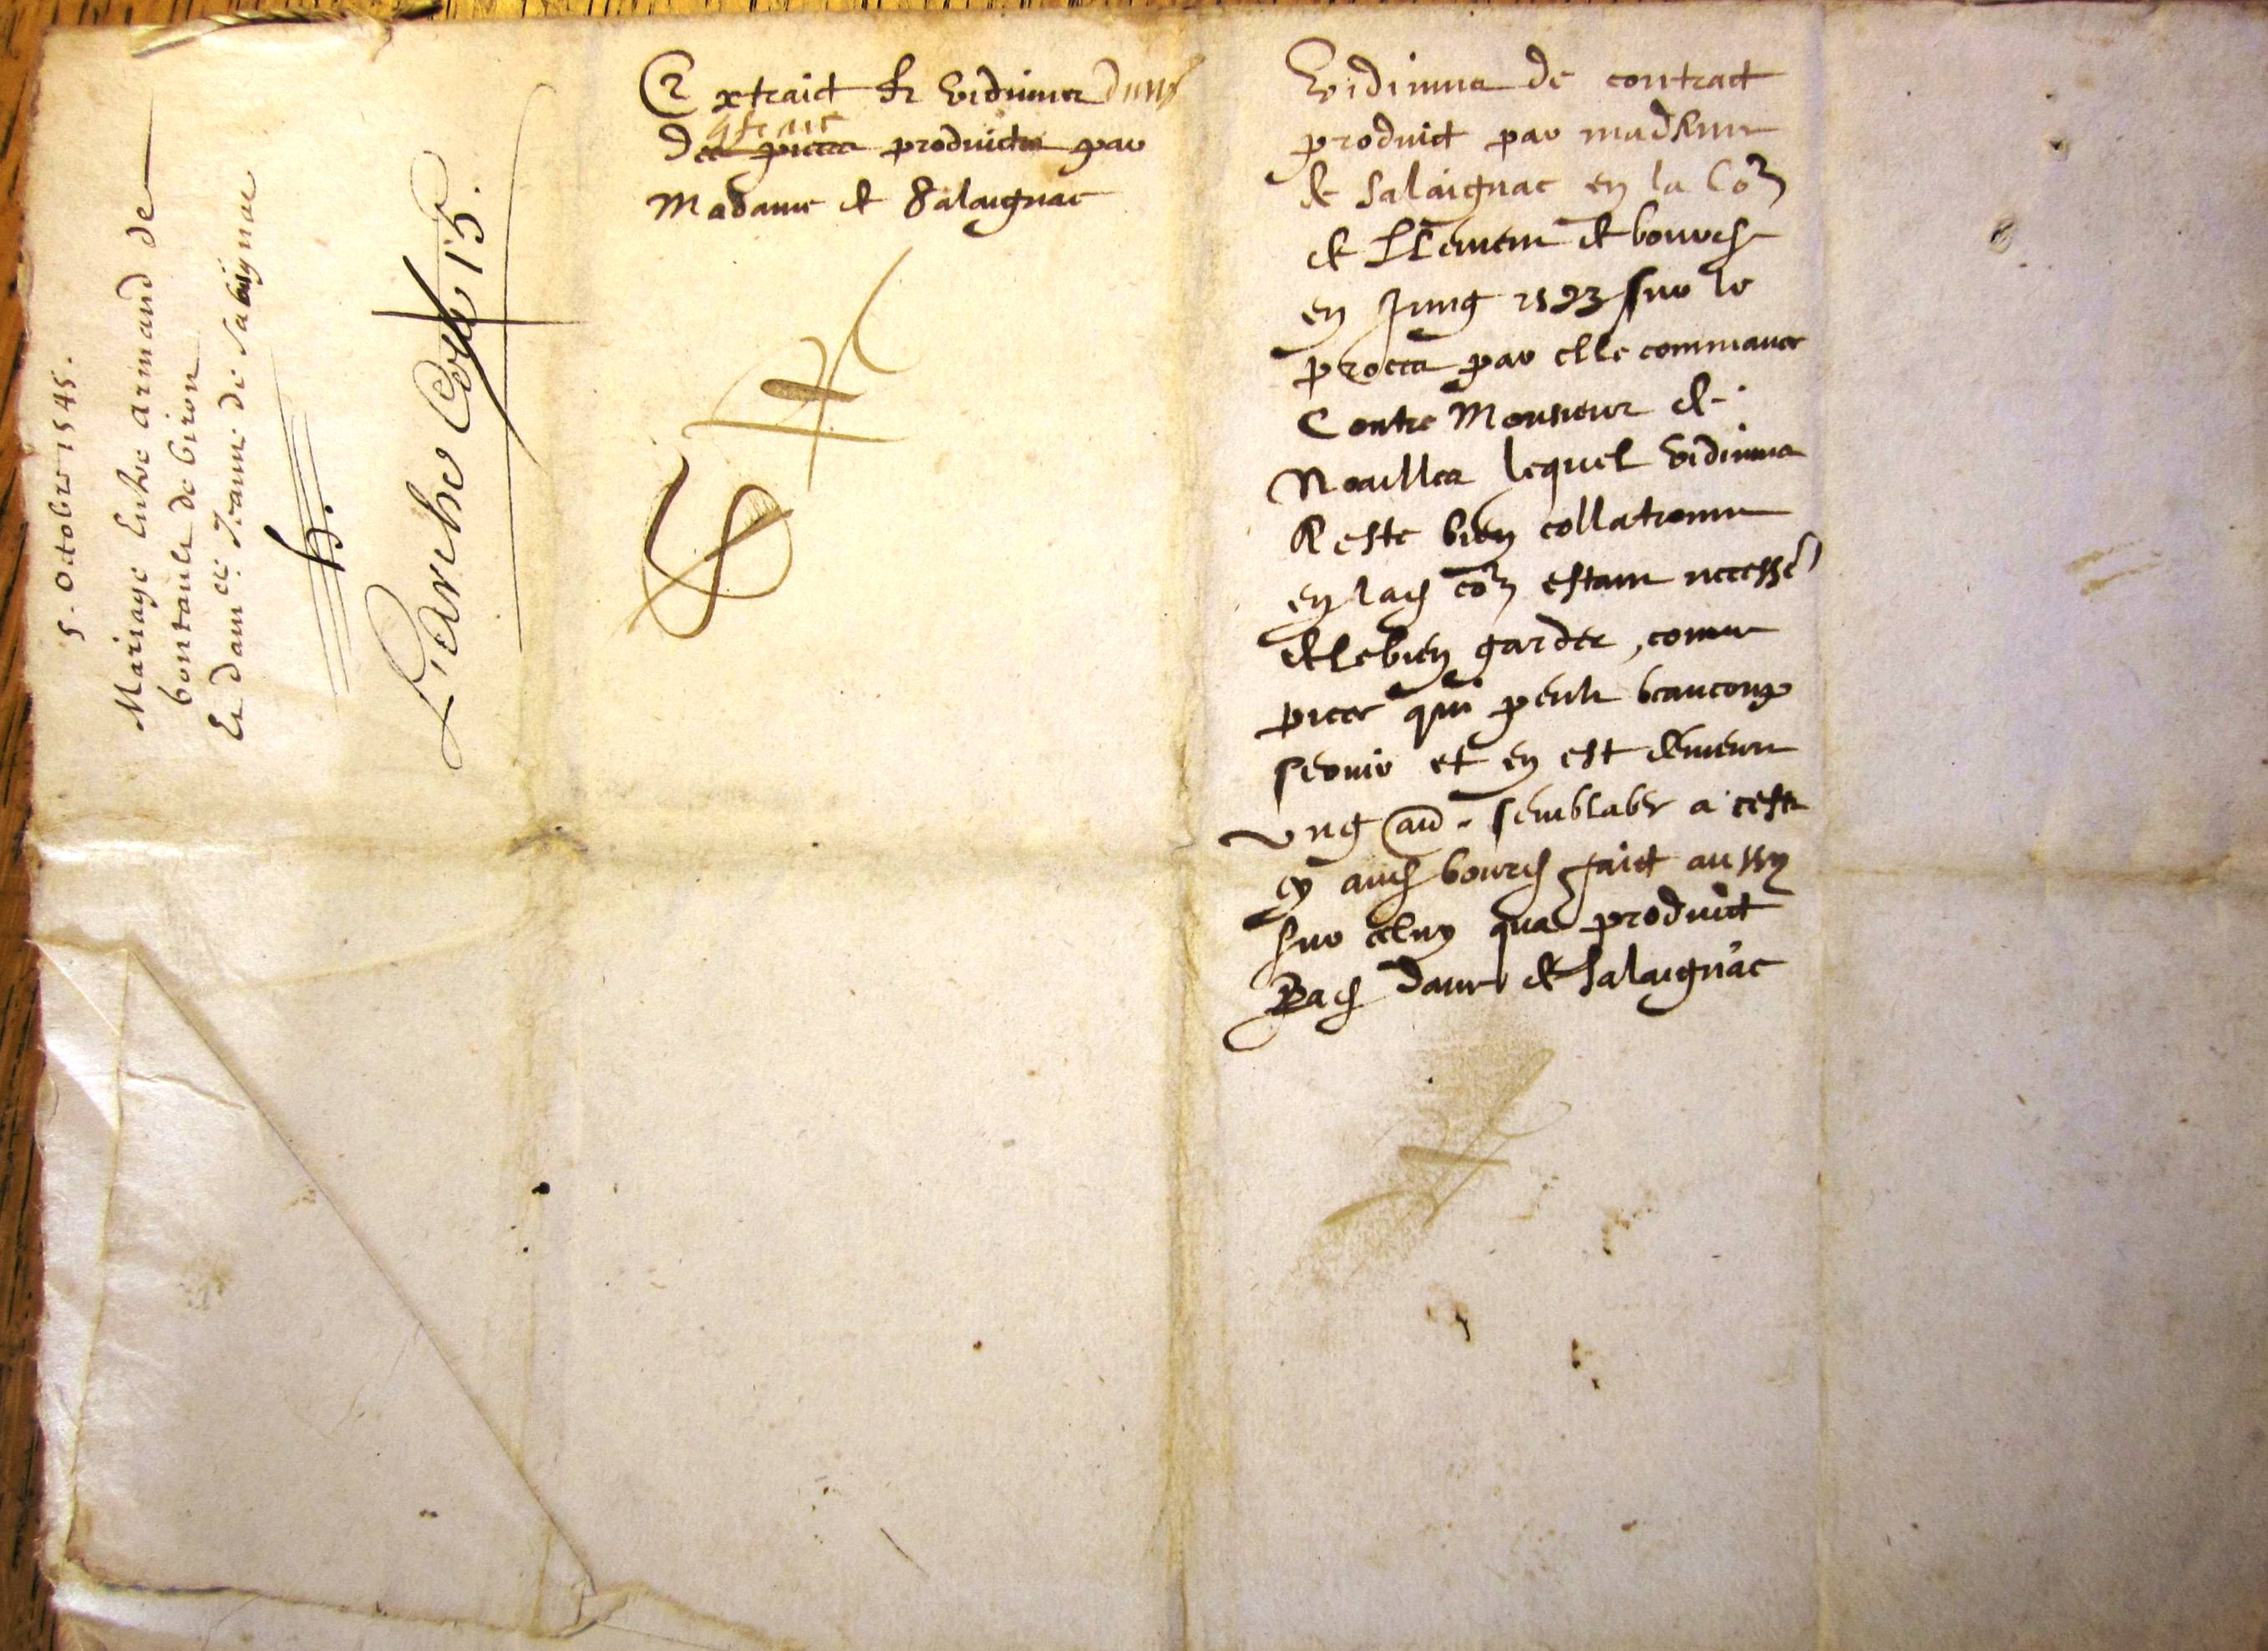 5. Octobre 1545.
Mariage Entre armand de
bontault de biron
Et dam.lle Jeanne de Salaignac
h.
Liarche Cotte 15.
Extraict et vidimus dung
contract
des pieces produictes par
Madame de Salaignac
H
Vidimus de contract
produict par madame
de Salaignac en la Co.n
de
en Jung 1593 sur le
proces par elle commance
Contre Monsieur de
Noailles lequel vidimus
A este bien collationne
en lad co.n estant necess.e
de le bien garder, comme
piece qui peult beaucoup
servir et en est demeure
ung au.e semblable a ceste
faict aussy
sur celuy qua produict
lad dame de Salaignac